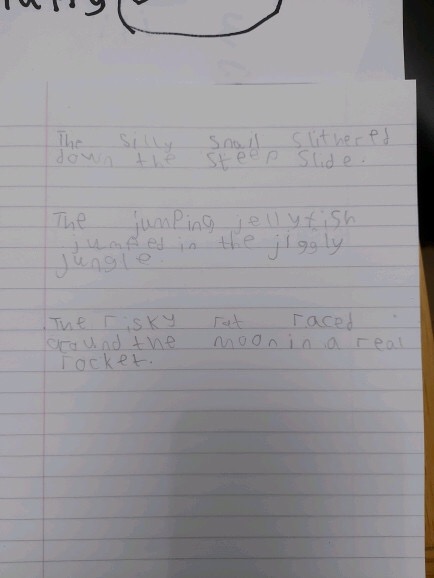 The silly snail slithered
down the steep slide.
The jumping jellyfish
jumped in the jiggly
jungle.
The risky rat raced
around the moon in a real
rocket.